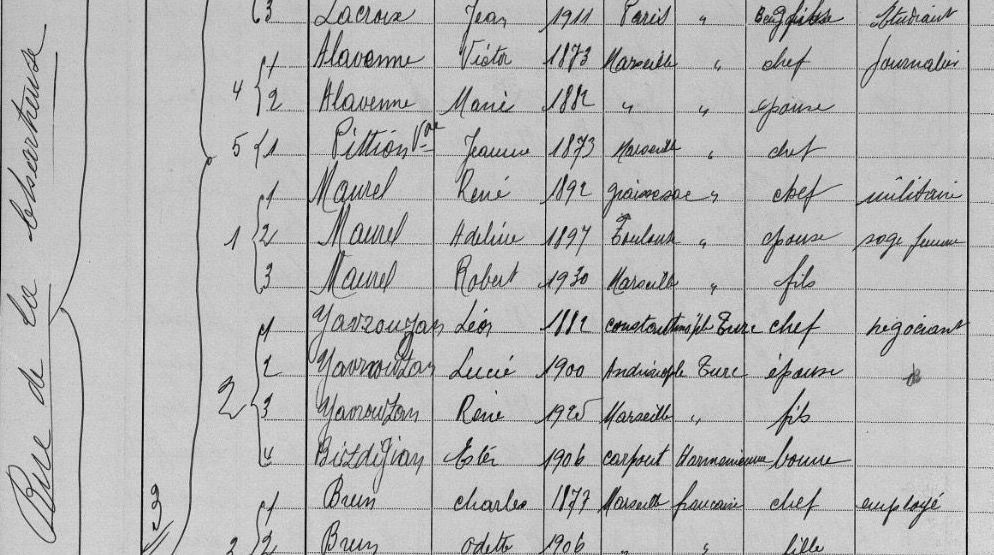 Rue de la Chartreuse
3 Lacroix Jean 1911 Paris " fils Etudiant
1 Alavenne Victor 1873 Marseille " chef journalier
4 2 Alavenne Marie 1882 " " épouse
5 1 Pittion Vve Jeanne 1873 Marseille " chef
1 Maurel René 1892 " chef militaire
1 2 Maurel Adeline 1897 Toulouse " épouse sage femme
3 Maurel Robert 1930 Marseille " fils
1 Léon 1882 constantinople Turc chef négociant
2 Lucie 1900 Andrinople Turc épouse
2 3 René 1925 Marseille " fils
4 Ester 1906 carpout Harmenienne bonne
122
1 Brun charles 1877 Marseille francaise chef employé
2 2 Brun odette 1906 " " fille